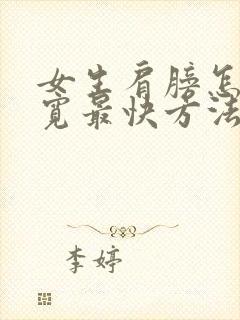 女生肩膀怎
宽最快方法
李婷